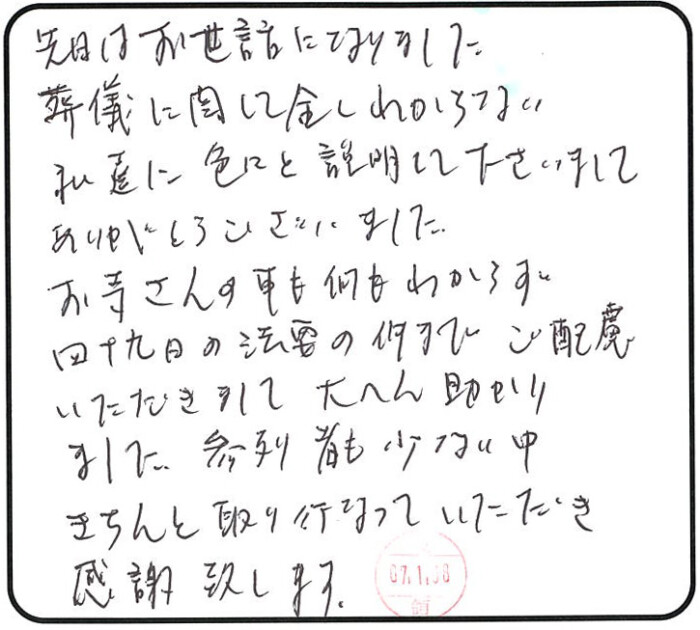 先日はお世話になりました
葬儀に関して全くわからない
私達に色々と説明して下さいまして
ありがとうございました
お寺さんの事も何もわからず
四十九日の法要の件まで ご配慮
いただきまして 大へん助かり
ました 参列者も少ない中
きちんと取り行なっていただき
感謝致します。